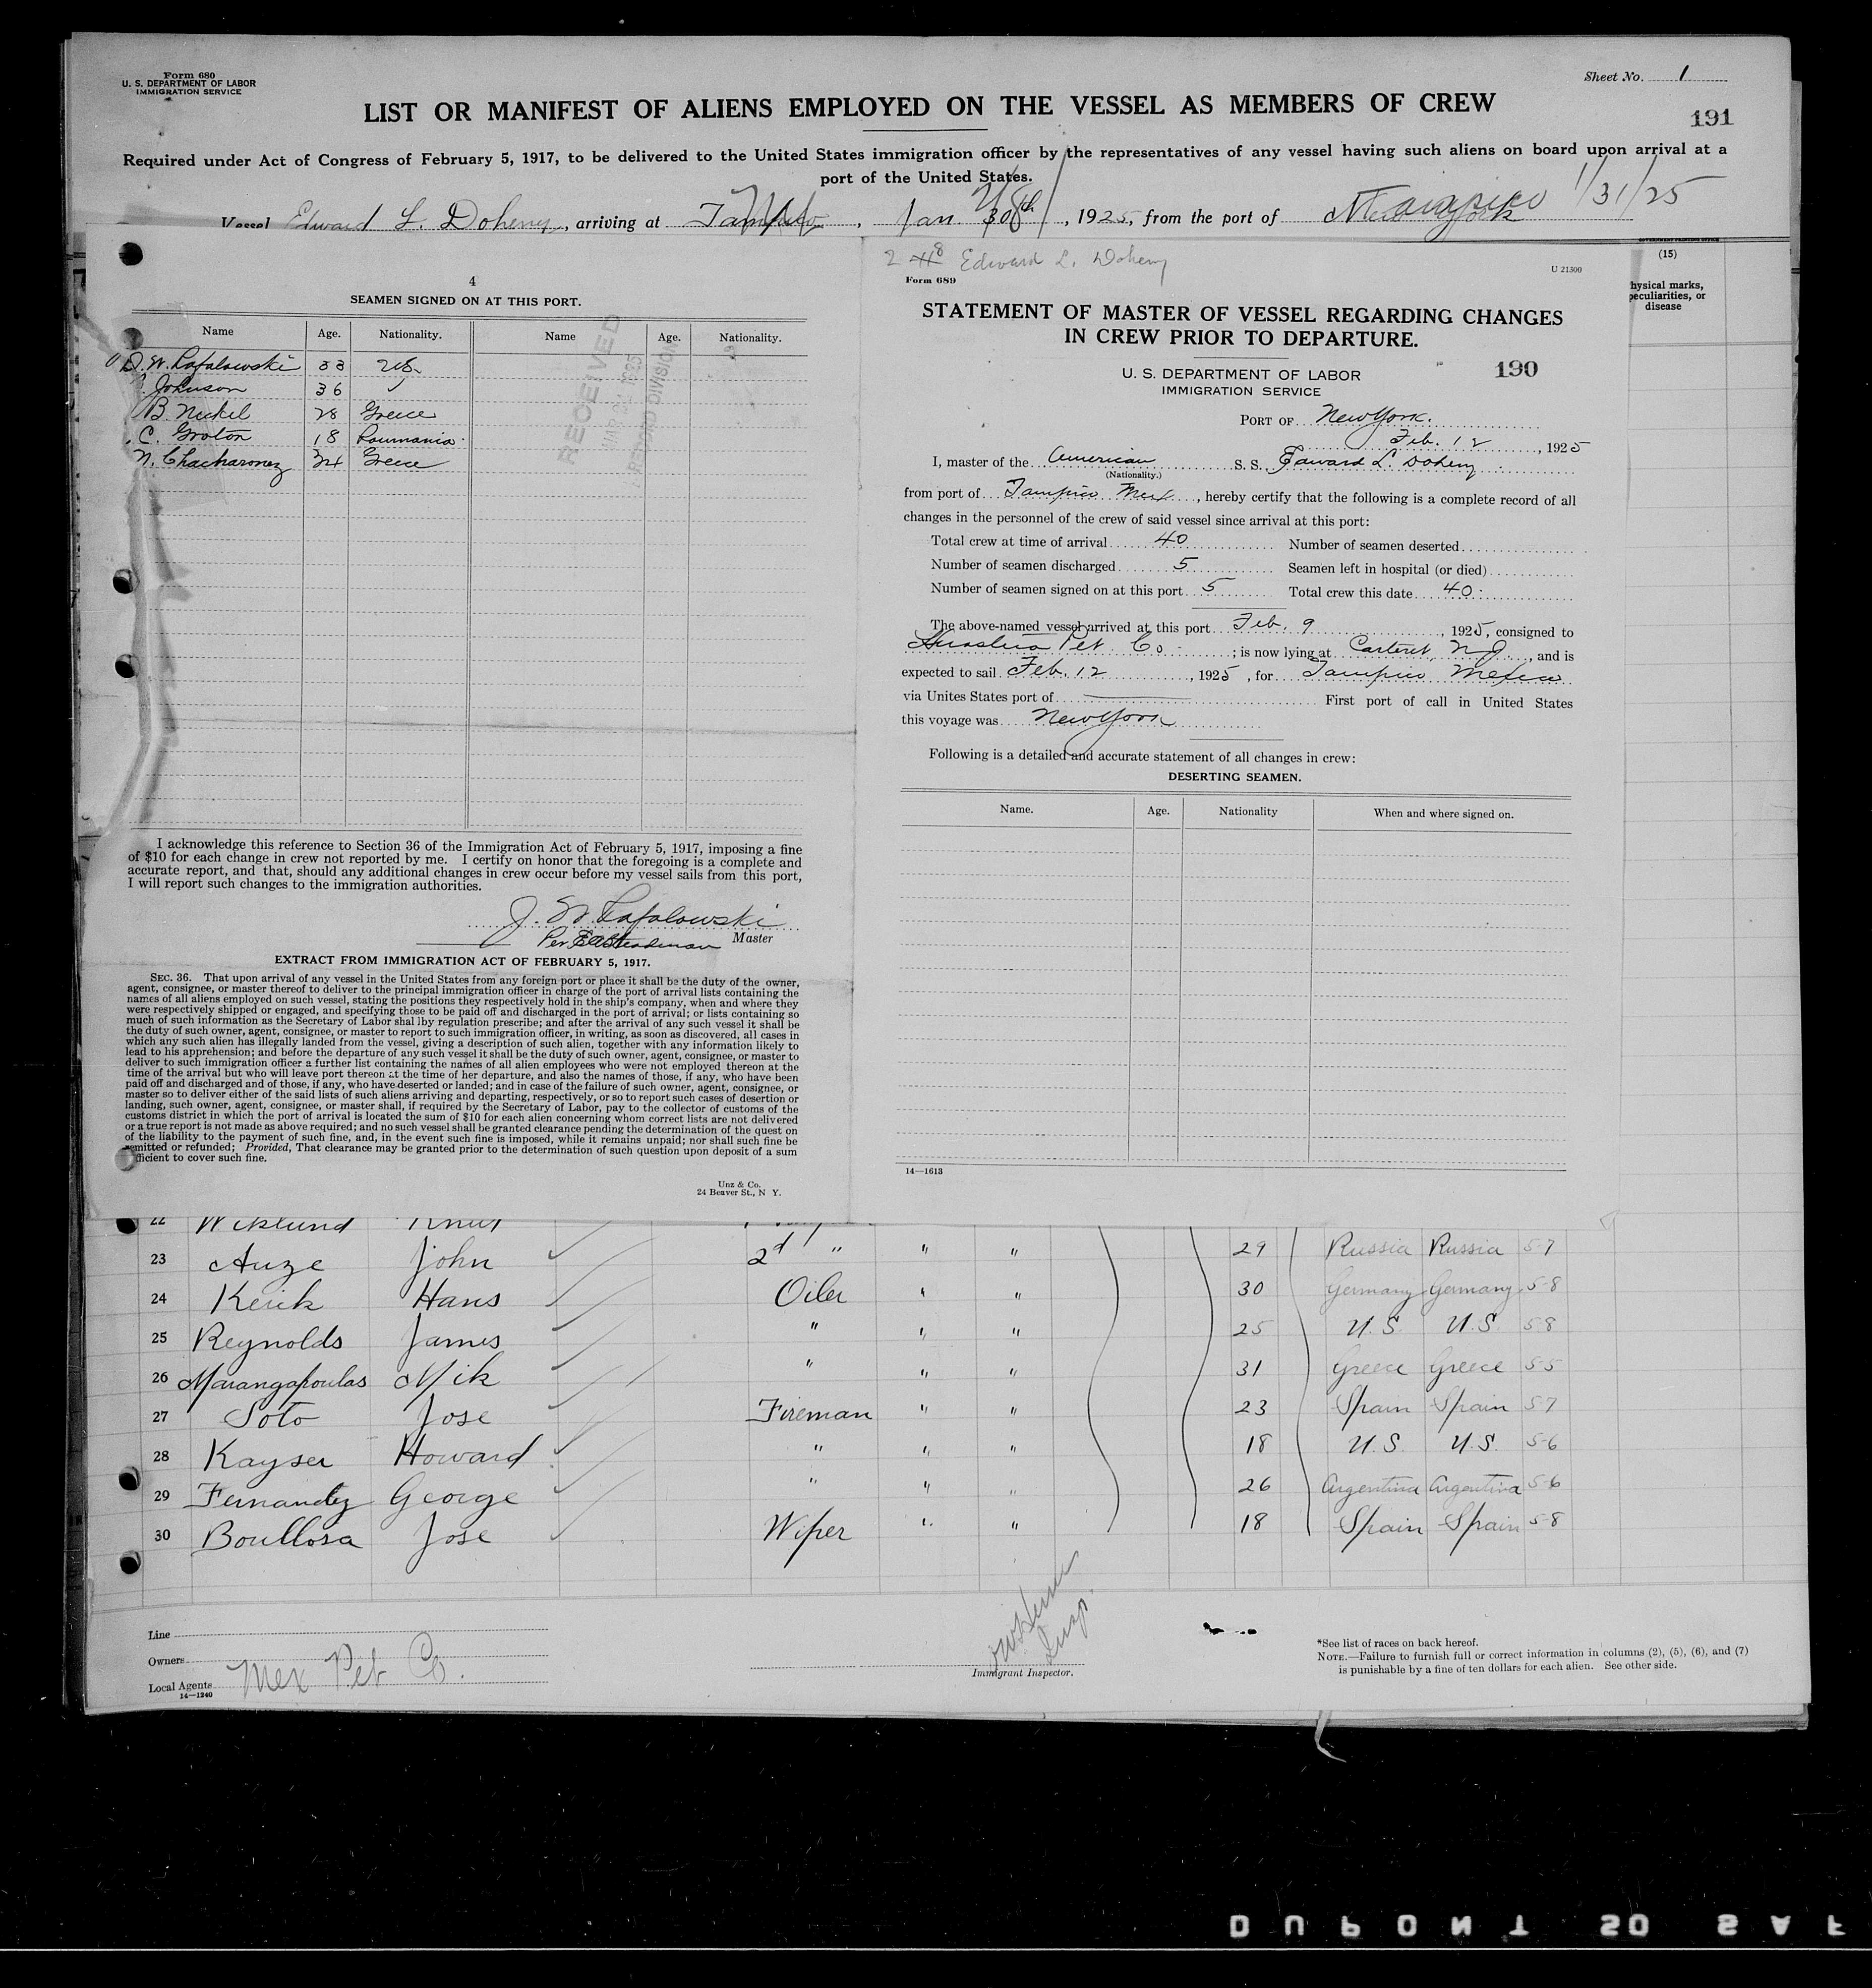 Form 680
U. S. DEPARTMENT OF LABOR
IMMIGRATION SERVICE
Sheet No. 1
LIST OR MANIFEST OF ALIENS EMPLOYED ON THE VESSEL AS MEMBERS OF CREW
191
Required under Act of Congress of February 5, 1917, to be delivered to the United States immigration officer by the representatives of any vessel having such aliens on board upon arrival at a
port of the United States.
Vessel Edward L. Doheny, arriving at Tampico, Jan. 30th, 1925, from the port of New York Tampico 1/31/25
4
SEAMEN SIGNED ON AT THIS PORT.
Name Age. Nationality. Name Age. Nationality.
33 U.S.
Johnson 36
B. Nickel 28 Greece
C. Groton 18 Roumania
34 Greece
RECEIVED
RECORD DIVISION
I acknowledge this reference to Section 36 of the Immigration Act of February 5, 1917, imposing a fine
of $10 for each change in crew not reported by me. I certify on honor that the foregoing is a complete and
accurate report, and that, should any additional changes in crew occur before my vessel sails from this port,
I will report such changes to the immigration authorities.
Per Master
EXTRACT FROM IMMIGRATION ACT OF FEBRUARY 5, 1917.
SEC. 36. That upon arrival of any vessel in the United States from any foreign port or place it shall be the duty of the owner,
agent, consignee, or master thereof to deliver to the principal immigration officer in charge of the port of arrival lists containing the
names of all aliens employed on such vessel, stating the positions they respectively hold in the ship's company, when and where they
were respectively shipped or engaged, and specifying those to be paid off and discharged in the port of arrival; or lists containing so
much of such information as the Secretary of Labor shal lby regulation prescribe; and after the arrival of any such vessel it shall be
the duty of such owner, agent, consignee, or master to report to such immigration officer, in writing, as soon as discovered, all cases in
which any such alien has illegally landed from the vessel, giving a description of such alien, together with any information likely to
lead to his apprehension; and before the departure of any such vessel it shall be the duty of such owner, agent, consignee, or master to
deliver to such immigration officer a further list containing the names of all alien employees who were not employed thereon at the
time of the arrival but who will leave port thereon at the time of her departure, and also the names of those, if any, who have been
paid off and discharged and of those, if any, who have deserted or landed; and in case of the failure of such owner, agent, consignee, or
master so to deliver either of the said lists of such aliens arriving and departing, respectively, or so to report such cases of desertion or
landing, such owner, agent, consignee, or master shall, if required by the Secretary of Labor, pay to the collector of customs of the
customs district in which the port of arrival is located the sum of $10 for each alien concerning whom correct lists are not delivered
or a true report is not made as above required; and no such vessel shall be granted clearance pending the determination of the quest on
of the liability to the payment of such fine, and, in the event such fine is imposed, while it remains unpaid; nor shall such fine be
emitted or refunded; Provided, That clearance may be granted prior to the determination of such question upon deposit of a sum
fficient to cover such fine.
Unz & Co.
24 Beaver St., N Y.
Edward L. Doheny
Form 689
U 21300
STATEMENT OF MASTER OF VESSEL REGARDING CHANGES
IN CREW PRIOR TO DEPARTURE.
U. S. DEPARTMENT OF LABOR
IMMIGRATION SERVICE
190
PORT OF New York.
Feb. 12, 1925
I, master of the American S. S. Edward L. Doheny
(Nationality.)
from port of Tampico Mex, hereby certify that the following is a complete record of all
changes in the personnel of the crew of said vessel since arrival at this port:
Total crew at time of arrival 40 Number of seamen deserted
Number of seamen discharged 5 Seamen left in hospital (or died)
Number of seamen signed on at this port 5 Total crew this date 40
The above-named vessel arrived at this port Feb. 9, 1925, consigned to
Huasteca Pet. Co; is now lying at Carteret, N.J., and is
expected to sail Feb. 12, 1925, for Tampico Mexico
via Unites States port of First port of call in United States
this voyage was New York
Following is a detailed and accurate statement of all changes in crew:
DESERTING SEAMEN.
Name. Age. Nationality When and where signed on.
14—1613
(15)
hysical marks,
peculiarities, or
disease
22 Wiklund Knut
23 Auze John 2d " " " 29 Russia Russia 5-7
24 Kerik Hans Oiler " " 30 Germany Germany 5-8
25 Reynolds James " " " 25 U.S. U.S. 5-8
26 Marangapoulas Mik " " " 31 Greece Greece 5-5
27 Soto Jose Fireman " " 23 Spain Spain 5-7
28 Kayser Howard " " " 18 U.S. U.S. 5-6
29 Fernandez George " " " 26 Argentina Argentina 5-6
30 Boullosa Jose Wiper " " 18 Spain Spain 5-8
Line
Owners
Local Agents Mex Pet Co.
14—1240
Insp.
Immigrant Inspector.
*See list of races on back hereof.
NOTE.—Failure to furnish full or correct information in columns (2), (5), (6), and (7)
is punishable by a fine of ten dollars for each alien. See other side.
DUPONT SO SAF